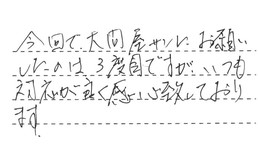 今回で大問屋サンにお願い
したのは3度目ですが、いつも
対応が良く感心致しており
ます